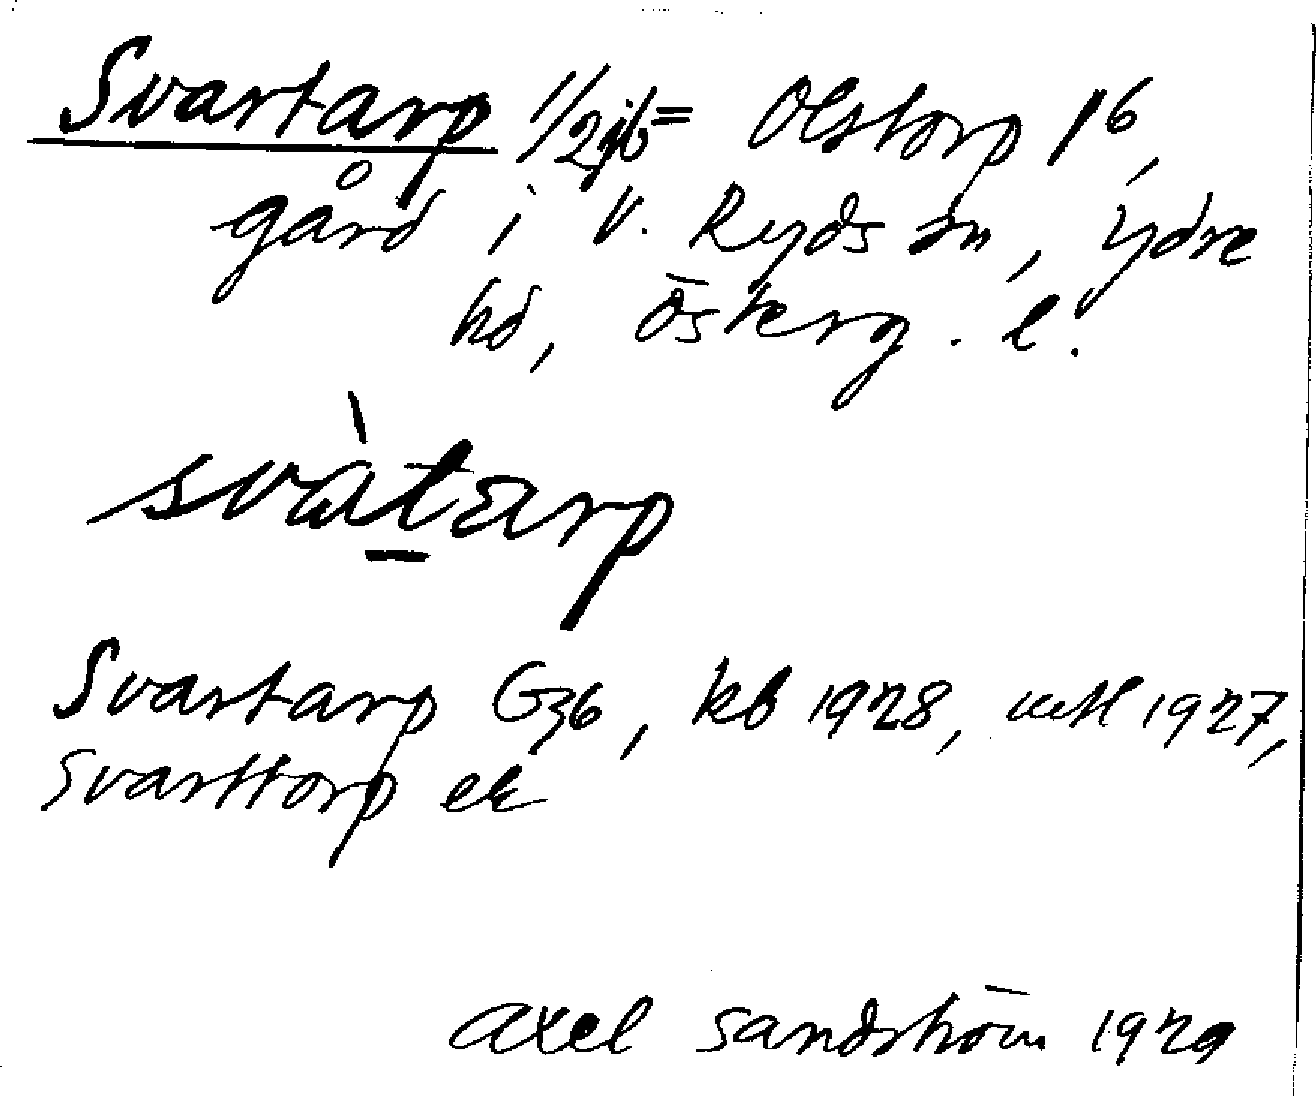 Svartarp 1/2 = Olstorp 16,
gård i V. Ryds sn, Ydre
hd, Österg. l.
svàtarp
Svartarp G36, kb 1928, mtl 1927,
Svarttorp ek
Axel Sandström 1929